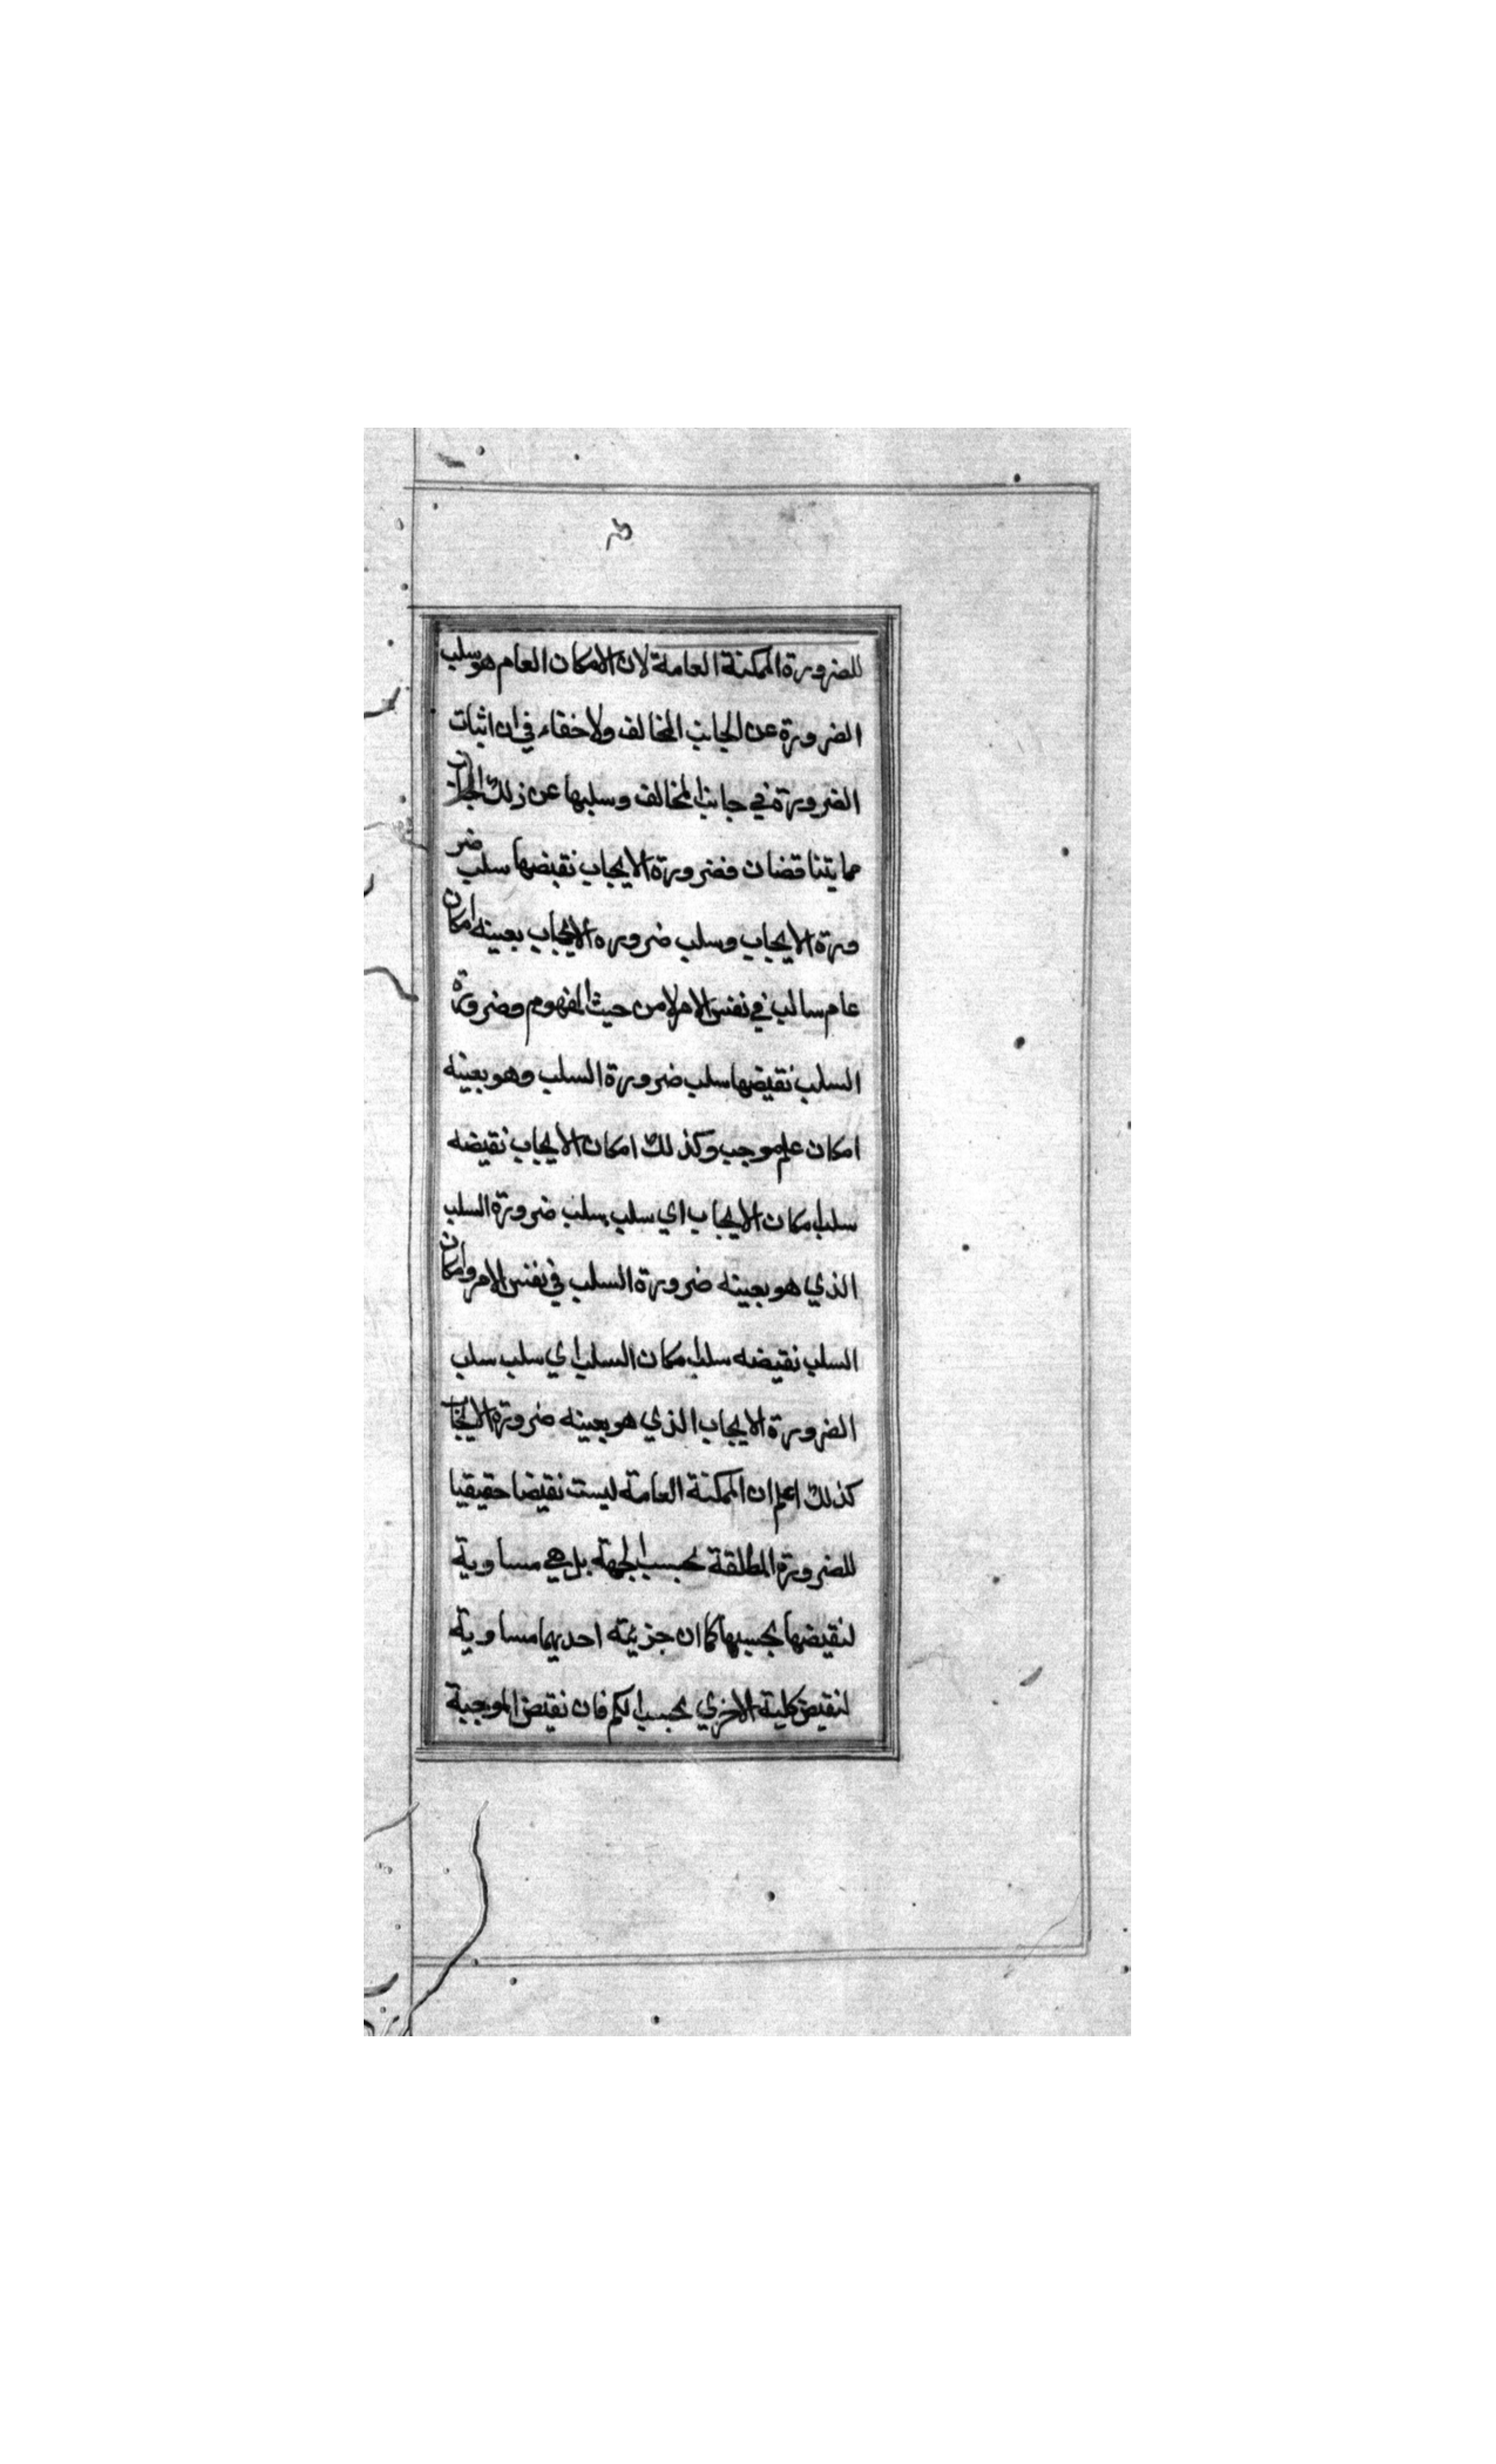 للضرورة الممكنة العاملة لان الامكان العام هو سلب
الضرورة عن الجانب المخالف ولا خفاء في ان اثبات
الضرورة في جانب المخالف وسلبها عن ذلك الجانب
مما يتناقضان فضرورة الايجاب نقيضها سلب ضر
ورة الايجاب وسلب ضرورة الايجاب بعينه امكان
عام سالب في نفس الامر لا من حيث المفهوم وضرورة
السلب نقيضها سلب ضرورة السلب وهو بعينه
امكان عام موجب وكذلك امكان الايجاب نقيضه
سلب امكان الايجاب اي سلب سلب ضرورة السلب
الذي هو بعينه ضرورة السلب في نفس الامر وامكان
السلب نقيضه سلب امكان السلب اي سلب سلب
الضرورة الايجاب الذي هو بعينه ضرورة الايجاب
كذلك اعلم ان الممكنة العامة ليست نقيضا حقيقيا
للضرورة المطلقة بحسب الجهة بل هي مساوية
لنقيضها بحسبها كما ان جزئية احديهما مساوية
لنقيض كلية الاخري بحسب الكم فان نقيض الموجبة